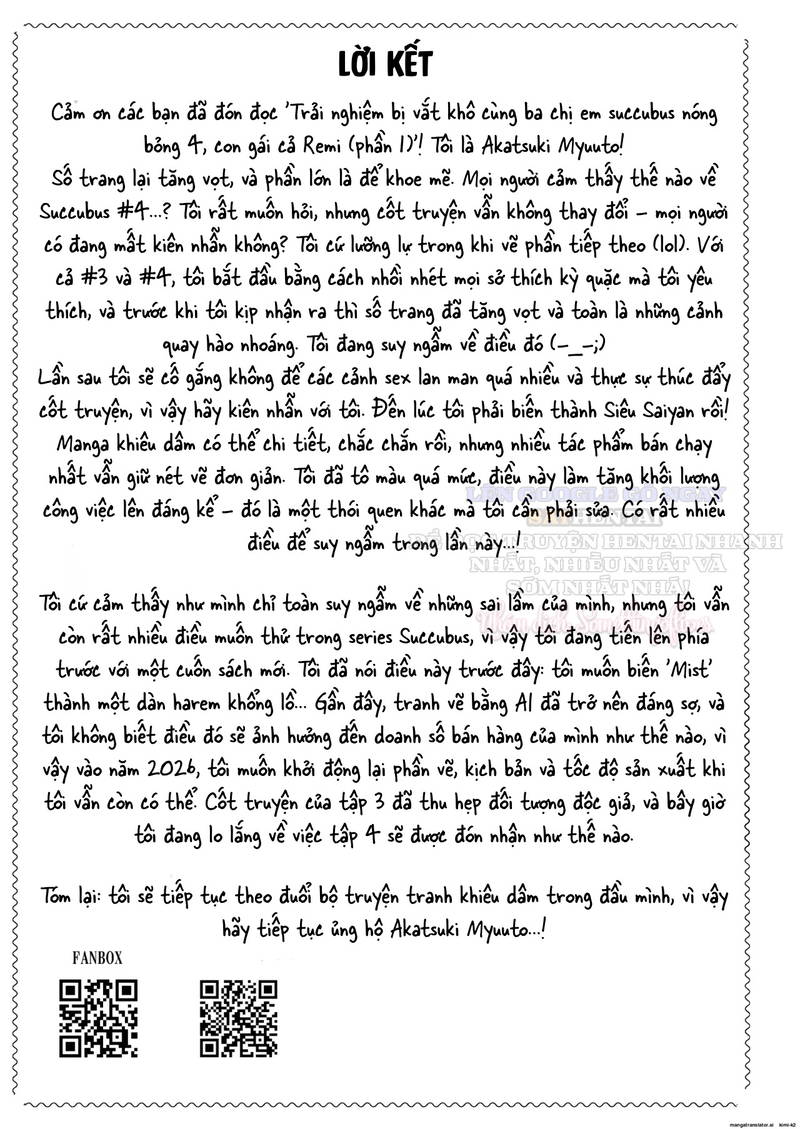 LỜI KẾT
Cảm ơn các bạn đã đón đọc 'Trải nghiệm bị vắt khô cùng ba chị em succubus nóng
bỏng 4, con gái cả Remi (phần 1)'! Tôi là Akatsuki Myuuto!
Số trang lại tăng vọt, và phần lớn là để khoe mẽ. Mọi người cảm thấy thế nào về
Succubus #4...? Tôi rất muốn hỏi, nhưng cốt truyện vẫn không thay đổi – mọi người
có đang mất kiên nhẫn không? Tôi cứ lưỡng lự trong khi vẽ phần tiếp theo (lol). Với
cả #3 và #4, tôi bắt đầu bằng cách nhồi nhét mọi sở thích kỳ quặc mà tôi yêu
thích, và trước khi tôi kịp nhận ra thì số trang đã tăng vọt và toàn là những cảnh
quay hào nhoáng. Tôi đang suy ngẫm về điều đó (-_-;)
Lần sau tôi sẽ cố gắng không để các cảnh sex lan man quá nhiều và thực sự thúc đẩy
cốt truyện, vì vậy hãy kiên nhẫn với tôi. Đến lúc tôi phải biến thành Siêu Saiyan rồi!
Manga khiêu dâm có thể chi tiết, chắc chắn rồi, nhưng nhiều tác phẩm bán chạy
nhất vẫn giữ nét vẽ đơn giản. Tôi đã tô màu quá mức, điều này làm tăng khối lượng
công việc lên đáng kể – đó là một thói quen khác mà tôi cần phải sửa. Có rất nhiều
điều để suy ngẫm trong lần này...!
LÊN GOOGLE GÕ NGAY
HENTAI
ĐỂ ĐỌC TRUYỆN HENTAI NHANH
NHẤT, NHIỀU NHẤT VÀ
SỚM NHẤT NHÁ!
Tôi cứ cảm thấy như mình chỉ toàn suy ngẫm về những sai lầm của mình, nhưng tôi vẫn
còn rất nhiều điều muốn thử trong series Succubus, vì vậy tôi đang tiến lên phía
trước với một cuốn sách mới. Tôi đã nói điều này trước đây: tôi muốn biến 'Mist'
thành một dàn harem khổng lồ... Gần đây, tranh vẽ bằng AI đã trở nên đáng sợ, và
tôi không biết điều đó sẽ ảnh hưởng đến doanh số bán hàng của mình như thế nào, vì
vậy vào năm 2026, tôi muốn khởi động lại phần vẽ, kịch bản và tốc độ sản xuất khi
tôi vẫn còn có thể. Cốt truyện của tập 3 đã thu hẹp đối tượng độc giả, và bây giờ
tôi đang lo lắng về việc tập 4 sẽ được đón nhận như thế nào.
Tóm lại: tôi sẽ tiếp tục theo đuổi bộ truyện tranh khiêu dâm trong đầu mình, vì vậy
hãy tiếp tục ủng hộ Akatsuki Myuuto...!
FANBOX
mangatranslator.ai kimi-k2